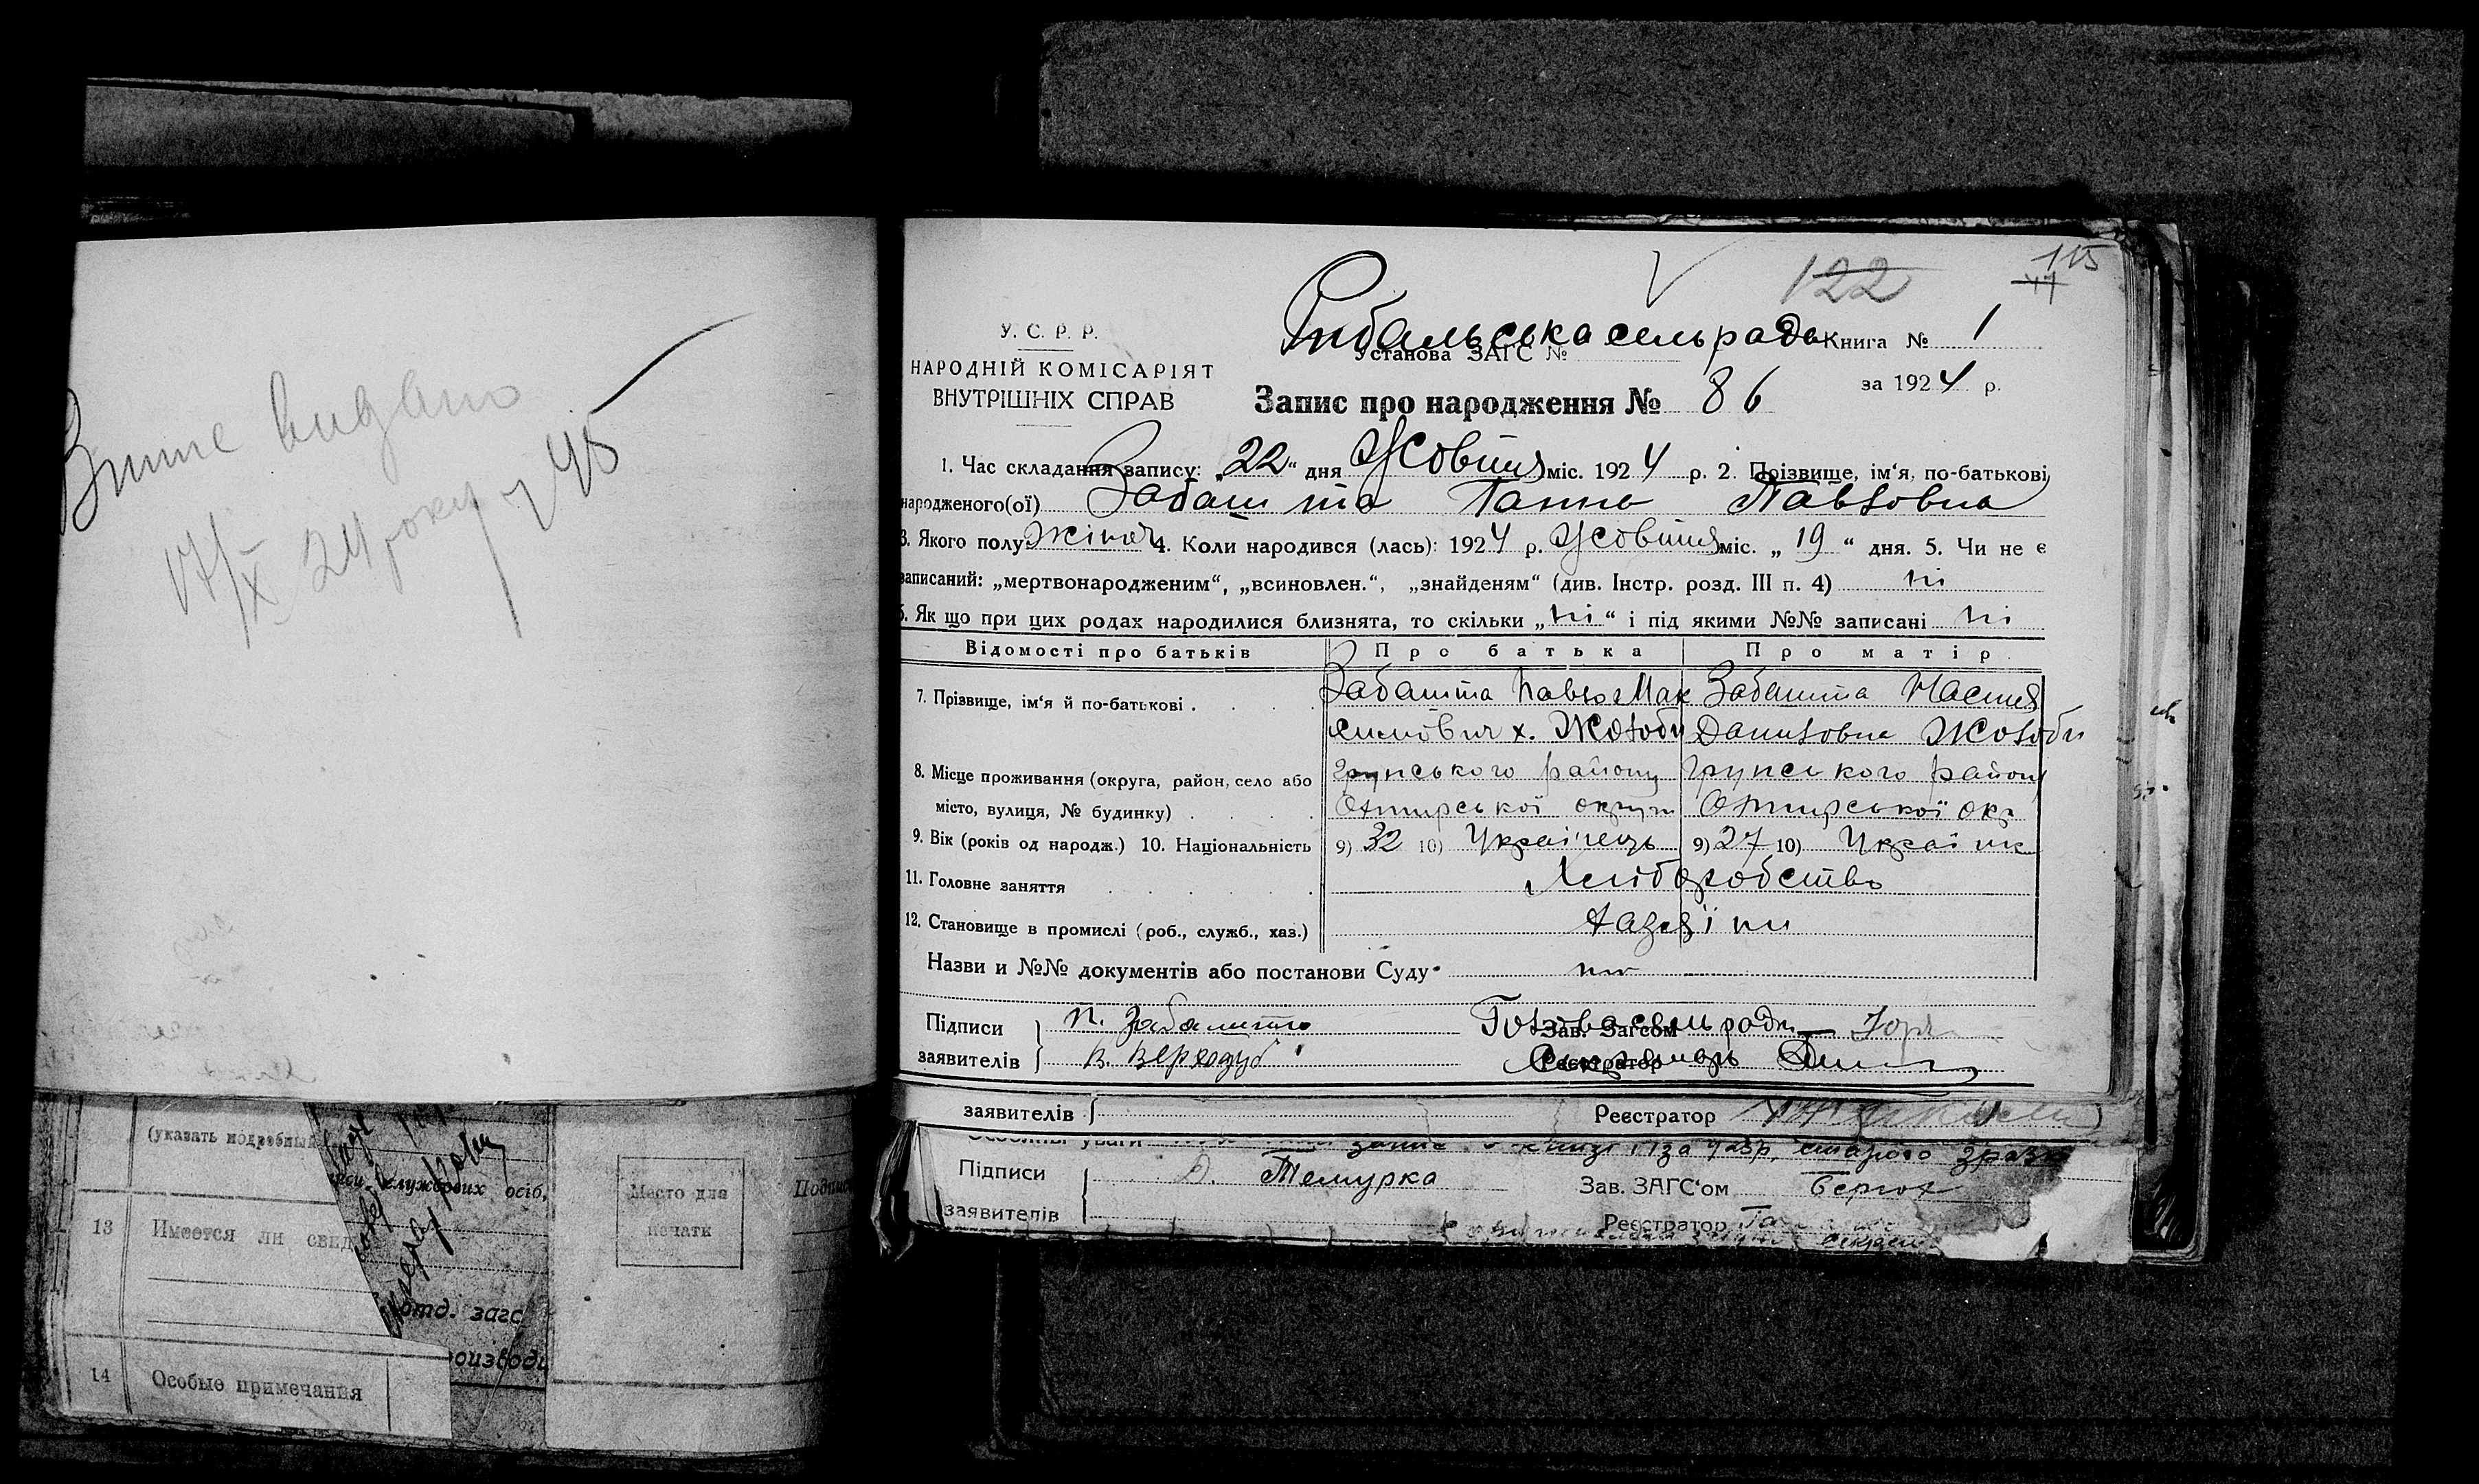 Витяг видано
17/X 24 року
У. С. Р. Р.
НАРОДНІЙ КОМІСАРІЯТ
ВНУТРІШНІХ СПРАВ
122
115
47
Рибальська сельрада
Установа ЗАГС №
Книга № 1
за 1924 р.
Запис про народження № 86
1. Час складання запису: „22“ дня Жовтня міс. 1924 р. 2. Прізвище, ім‘я, по-батькові
народженого(ої) Забашта Ганна Павловна
3. Якого полу Жіноч 4. Коли народився (лась): 1924 р. Жовтня міс. „19“ дня. 5. Чи не є
записаний: „мертвонародженим“, „всиновлен.“, „знайденям“ (див. Інстр. розд. III п. 4) ні
6. Як що при цих родах народилися близнята, то скільки „ні“ і під якими №№ записані ні
Відомості про батьків Про батька Про матір.
7. Прізвище, ім‘я й по-батькові . Забашта Павло Мак Забашта Настя
симович х. Жолоби Даниловна Жолоби
8. Місце проживання (округа, район, село або Грунського району Грунського району
місто, вулиця, № будинку) . Охтирської округи Охтирської окр
9. Вік (років од народж.) 10. Національність 9) 32 10) Українець 9) 27 10) Українк
11. Головне заняття Хліборобство
12. Становище в промислі (роб., служб., хаз.) хазяїни
Назви и №№ документів або постанови Суду
Підписи П. Забашта Голова сельради
Зав. Загсом
заявителів В. Верходуб Секретарь
Реєстратор
заявителів Реєстратор
Підписи Д. Темурка Зав. ЗАГС‘ом
заявителів Реєстратор
(указать подробный
службових осіб,
Место для
печати
13 Имеется ли свид
отд. загс
14 Особые примечания